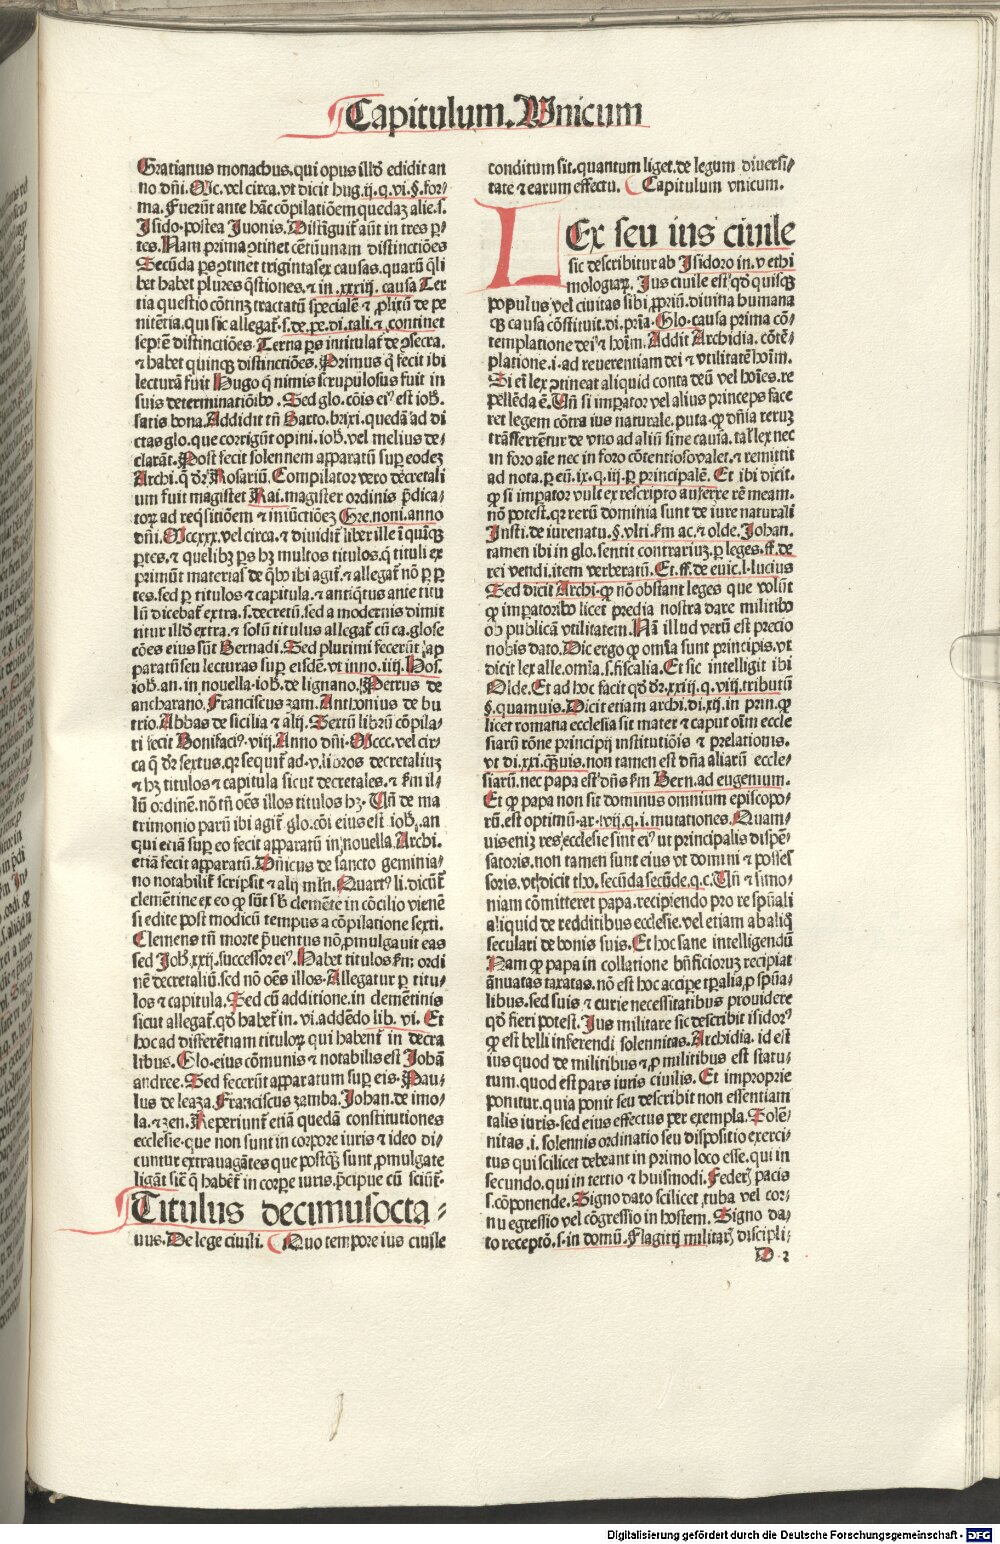 Capitulum. Vnicum
Gratianus monachus.qui opus illđ edidit an
no dñi. Mc. vel circa.vt dicit hug.ij. q. vi. §. for-
ma. Fuerũt ante hãc cõpilatiõem quedaꝫ alie.s.
Isido.postea Iuonis. Distinguit̃ aũt in tres ꝑ-
tes. Nam prima ꝯtinet centũ vnam distinctiões
Secũda ꝑs ꝯtinet trigintasex causas.quarũ q̃li
bet habet plures q̃stiones.⁊ in .xxxiij. causa Ter
tia questio cõtinꝫ tractatũ specialẽ ⁊ ꝓlixũ de pe
nitẽtia.qui sic allegat̃.s.de.pe.di.tali.⁊ ꝯtinet
septẽ distinctiões. Tertia ꝑs intitulat̃ de ꝯsecra.
⁊ habet quinqꝫ distinctiões. Primus q̃ fecit ibi
lecturã fuit Hugo q̃ nimis scrupulosus fuit in
suis determinatiõibꝰ. Sed glo. cõis eiꝰ est ioh̃.
satis bona. Addidit tñ Barto. brixi. quedã ad di
ctas glo. que corrigũt opini. ioh̃. vel melius de-
clarãt. Post fecit solennem apparatũ suꝑ eodeꝫ
Archi. q̃ dr̃ Rosariũ. Compilator vero decretali
um fuit magister Rai. magister ordinis p̃dica-
toꝝ ad req̃sitiõem ⁊ iniũctiõeꝫ Gre. noni. anno
dñi. Mccxxx. vel circa. ⁊ diuidit̃ liber ille ĩ quĩqꝫ
ꝑtes. ⁊ quelibꝫ ꝑs hꝫ multos titulos. q̃ tituli ex
primũt materiaꝫ de q̃bꝰ ibi agit̃. ⁊ allegat̃ nõ ꝑ ꝑ
tes. sed ꝑ titulos ⁊ capitula. ⁊ antiq̃tus ante titu
lũ dicebat̃ extra. s. decretũ. sed a modernis dimit
titur illđ extra. ⁊ solũ titulus allegat̃ cũ ca. glose
cões eius sũt Bernadi. Sed plurimi fecerũt ap
paratũ seu lecturas suꝑ eisdẽ. vt inno. iiij. Hos.
ioh̃. an. in nouella. ioh̃. de lignano. Petrus de
ancharano. Franciscus zam. Anthonius de bu
trio. Abbas de sicilia ⁊ alij. Sextũ librũ cõpila-
ri fecit Bonifaciꝰ. viij. Anno dñi. Mccc. vel cir-
ca q̃ dr̃ sextus. qꝛ sequit̃ ad. v. libros decretaliuꝫ
⁊ hꝫ titulos ⁊ capitula sicut decretales. ⁊ ẜm il-
lũ ordinẽ. nõ tñ oẽs illos titulos hꝫ. Vñ de ma
trimonio parũ ibi agit̃. glo. cõi eius est ioh̃. an
qui etiã suꝑ eo fecit apparatũ in nouella. Archi.
etiã fecit apparatũ. Dñicus de sancto geminia-
no notabilit̃ scripsit ⁊ alij mlti. Quartꝰ li. dicũt̃
clemẽtine ex eo q̃ sũt sb̃ clemẽte in cõcilio vienẽ
si edite post modicũ tempus a cõpilatione sexti.
Clemens tñ morte p̃uentus nõ ꝓmulgauit eas
sed Joh̃. xxij. successor eiꝰ. Habet titulos ẜm ordi
nẽ decretaliũ. sed nõ oẽs illos. Allegatur ꝑ titu-
los ⁊ capitula. Sed cũ additione. in clemẽtinis
sicut allegat̃. qđ habet̃ in. vi. addẽdo lib. vi. Et
hoc ad differẽtiam tituloꝝ qui habent̃ in decre
libus. Glo. eius cõmunis ⁊ notabilis est Johã
andree. Sed fecerũt apparatum suꝑ eis. Pau-
lus de leaza. Franciscus zamba. Johan. de imo-
la. ⁊ zen. Reperiunt̃ etiã quedã constitutiones
ecclesie. que non sunt in corpore iuris ⁊ ideo di-
cuntur extrauagãtes que postqꝫ sunt ꝓmulgate
ligãt sic̃t q̃ habẽt̃ in corꝑe iuris. p̃cipue cũ sciũt̃.
Titulus decimusocta-
uus. De lege ciuili. Quo tempore ius ciuile
conditum sit. quantum liget. de legum diuersi-
tate ⁊ earum effectu. Capitulum vnicum.
LEx seu ius ciuile
sic describitur ab Isidoro in. v ethi
mologiaꝝ. Ius ciuile est qđ quisqꝫ
populus vel ciuitas sibi ꝓpriũ. diuina humana
qꝫ causa cõstituit. di. pria. Glo. causa prima cõ-
templatione dei ⁊ hoĩm. Addit Archidia. cõtẽ-
platione. i. ad reuerentiam dei ⁊ vtilitatẽ hoĩm.
Si em̃ lex ꝯtineat aliquid contra deũ vel hoĩes. re
pellẽda ẽ. Vñ si imꝑator vel alius princeps face
ret legem cõtra ius naturale. puta. ꝙ dñia reruꝫ
trãsferrẽtur de vno ad aliũ sine causa. talis lex nec
in foro aĩe nec in foro cõtentioso valet. ⁊ remittit
ad nota. ꝑ eũ. ix. q. iij. ꝑ principale. Et ibi dicit.
ꝙ si imꝑator vult ex rescripto auferre rẽ meam.
nõ potest. qꝛ rerũ dominia sunt de iure naturali
Insti. de iure natu. §. vlti. ẜm ac. ⁊ olde. Johan.
tamen ibi in glo. sentit contrariuꝫ. ꝑ leges. ff. de
rei vendi. item verberatũ. Et. ff. de euic. l. lucius
Sed dicit Archi. ꝙ nõ obstant leges que volũt
ꝙ imꝑatoribꝰ licet predia nostra dare militibꝰ
ob publicã vtilitatem. Nã illud verũ est precio
nobis dato. Dic ergo ꝙ om̃ia sunt principis. vt
dicit lex alle. om̃ia. s. fiscalia. Et sic intelligit ibi
Olde. Et ad hoc facit qđ dr̃. xxiij. q. viij. tributũ
§. quamuis. Dicit etiam archi. di. xij. in prin. ꝙ
licet romana ecclesia sit mater ⁊ caput oĩm eccle
siarũ rõne principij institutiõis ⁊ prelationis.
vt di. xxi. q̃ꝫuis. non tamen est dña aliarũ eccle-
siarũ. nec papa est dñs ẜm Bern. ad eugenium.
Et ꝙ papa non sit dominus omnium episcopo-
rũ. est optimũ. ar. vij. q. i. mutationes. Quam-
uis enim res ecclesie sint eiꝰ vt principalis dispẽ-
satoris. non tamen sunt eius vt domini ⁊ posses
soris. vt dicit tho. secũda secũde. q. c. Vñ ⁊ simo-
niam cõmitteret papa. recipiendo pro re sp̃uali
aliquid de redditibus ecclesie. vel etiam ab aliq̃
seculari de bonis suis. Et hoc sane intelligendũ
Nam ꝙ papa in collatione bñficioruꝫ recipiat
ãnuatas taxatas. nõ est hoc accipe tp̃alia ꝓ sp̃ua-
libus. sed suis ⁊ curie necessitatibus prouidere
qđ fieri potest. Ius militare sic describit isidorꝰ
ꝙ est belli inferendi solennitas. Archidia. id est
ius quod de militibus ⁊ ꝓ militibus est statu-
tum. quod est pars iuris ciuilis. Et improprie
ponitur. quia ponit seu describit non essentiam
talis iuris. sed eius effectus per exempla. Solẽ-
nitas. i. solennis ordinatio seu dispositio exerci-
tus qui scilicet debeant in primo loco esse. qui in
secundo. qui in tertio ⁊ huiusmodi. Federꝫ pacis
s. cõponende. Signo dato scilicet. tuba vel cor-
nu egressio vel cõgressio in hostem. Signo da-
to receptõ. s. in domũ. Flagitij militarꝫ discipli-
D 2
Digitalisierung gefördert durch die Deutsche Forschungsgemeinschaft - DFG